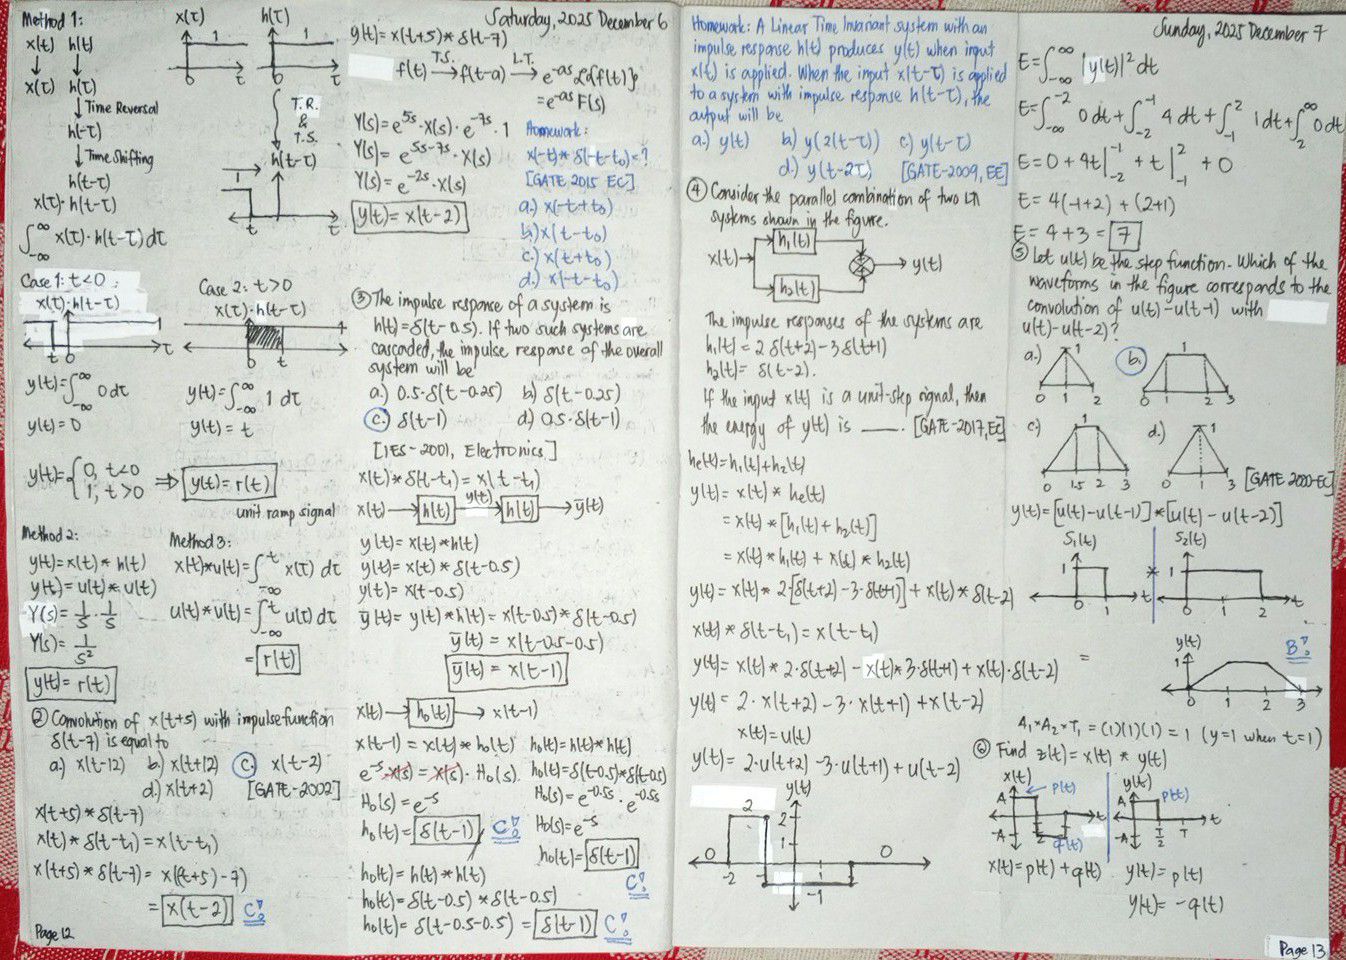 Saturday, 2025 December 6
Method 1:
x(t) h(t)
↓ ↓
x(τ) h(τ)
↓ Time Reversal
h(-τ)
↓ Time Shifting
h(t-τ)
x(τ)·h(t-τ)
∫_{-∞}^{∞} x(τ)·h(t-τ) dτ
x(τ) h(τ)
1 1
0 τ 0 τ
T.R.
&
T.S.
h(t-τ)
1
t t
Case 1: t<0 ;
x(τ)·h(t-τ)
1
t 0 τ
y(t)=∫_{-∞}^{∞} 0 dτ
y(t)=0
Case 2: t>0
x(τ)·h(t-τ)
0 t
y(t)=∫_{-∞}^{∞} 1 dτ
y(t)= t
y(t)={0, t<0
1, t>0 ⇒ y(t)=r(t)
unit ramp signal
Method 2:
y(t)=x(t)*h(t)
y(t)=u(t)*u(t)
Y(s)= 1/s · 1/s
Y(s)= 1/s²
y(t)=r(t)
Method 3:
x(t)*u(t)=∫_{-∞}^{t} x(τ) dτ
u(t)*u(t)=∫_{-∞}^{t} u(τ) dτ
= r(t)
② Convolution of x(t+5) with impulse function
δ(t-7) is equal to
a.) x(t-12) b.) x(t+12) c. x(t-2)
d.) x(t+2) [GATE-2002]
x(t+5)*δ(t-7)
x(t)*δ(t-t₁)=x(t-t₁)
x(t+5)*δ(t-7)= x((t+5)-7)
= x(t-2) C!
Page 12
y(t)=x(t+5)*δ(t-7)
f(t) T.S.→ f(t-a) L.T.→ e^{-as} L{f(t)}
=e^{-as} F(s)
Y(s)=e^{5s}·X(s)·e^{-7s}·1
Y(s)= e^{5s-7s}·X(s)
Y(s)= e^{-2s}·X(s)
y(t)=x(t-2)
Homework:
x(-t)*δ(-t-t₀)=?
[GATE 2015 EC]
a.) x(-t+t₀)
b.) x(t-t₀)
c.) x(t+t₀)
d.) x(-t-t₀)
③ The impulse response of a system is
h(t)=δ(t-0.5). If two such systems are
cascaded, the impulse response of the overall
system will be
a.) 0.5·δ(t-0.25) b) δ(t-0.25)
c. δ(t-1) d.) 0.5·δ(t-1)
[IES-2001, Electronics]
x(t)*δ(t-t₁)=x(t-t₁)
x(t)→h(t) y(t)→h(t)→ȳ(t)
y(t)=x(t)*h(t)
y(t)=x(t)*δ(t-0.5)
y(t)=x(t-0.5)
ȳ(t)=y(t)*h(t)=x(t-0.5)*δ(t-0.5)
ȳ(t)=x(t-0.5-0.5)
ȳ(t)=x(t-1)
x(t)→h₀(t)→x(t-1)
x(t-1)=x(t)*h₀(t)
e^{-s}·X(s)=X(s)·H₀(s)
H₀(s)=e^{-s}
h₀(t)=δ(t-1) C!
h₀(t)=h(t)*h(t)
h₀(t)=δ(t-0.5)*δ(t-0.5)
H₀(s)=e^{-0.5s}·e^{-0.5s}
H₀(s)=e^{-s}
h₀(t)=δ(t-1)
C!
h₀(t)=h(t)*h(t)
h₀(t)=δ(t-0.5)*δ(t-0.5)
h₀(t)=δ(t-0.5-0.5)=δ(t-1) C!
Sunday, 2025 December 7
Homework: A Linear Time Invariant system with an
impulse response h(t) produces y(t) when input
x(t) is applied. When the input x(t-τ) is applied
to a system with impulse response h(t-τ), the
output will be
a.) y(t) b) y(2(t-τ)) c) y(t-τ)
d.) y(t-2τ) [GATE-2009, EE]
④ Consider the parallel combination of two LTI
systems shown in the figure.
x(t) h₁(t) h₂(t) y(t)
The impulse responses of the systems are
h₁(t)=2δ(t+2)-3δ(t+1)
h₂(t)= δ(t-2).
If the input x(t) is a unit-step signal, then
the energy of y(t) is ____. [GATE-2017, EC]
he(t)=h₁(t)+h₂(t)
y(t)=x(t)*he(t)
=x(t)*[h₁(t)+h₂(t)]
=x(t)*h₁(t)+x(t)*h₂(t)
y(t)=x(t)*2[δ(t+2)-3·δ(t+1)]+x(t)*δ(t-2)
x(t)*δ(t-t₁)=x(t-t₁)
y(t)=x(t)*2·δ(t+2)-x(t)*3·δ(t+1)+x(t)·δ(t-2)
y(t)=2·x(t+2)-3·x(t+1)+x(t-2)
x(t)=u(t)
y(t)=2·u(t+2)-3·u(t+1)+u(t-2)
y(t)
2 2
1
0 0
-2 -1 1 2
-1
E=∫_{-∞}^{∞} |y(t)|² dt
E=∫_{-∞}^{-2} 0 dt+∫_{-2}^{-1} 4 dt+∫_{-1}^{2} 1 dt+∫_{2}^{∞} 0 dt
E=0+4t|_{-2}^{-1}+t|_{-1}^{2}+0
E=4(-1+2)+(2+1)
E=4+3=7
⑤ Let u(t) be the step function. Which of the
waveforms in the figure corresponds to the
convolution of u(t)-u(t-1) with
u(t)-u(t-2)?
a.) 1 0 1 2
b. 1 0 1 2 3
c.) 0 1.5 2 3
d.) 1 0 1 3
[GATE 2000-EC]
y(t)=[u(t)-u(t-1)]*[u(t)-u(t-2)]
S₁(t) S₂(t)
1 0 1 t * 1 0 1 2 t
= y(t) B!
1 0 1 2 3
A₁×A₂×T₁=(1)(1)(1)=1 (y=1 when t=1)
⑥ Find z(t)=x(t)*y(t)
x(t) p(t) y(t) p(t)
A -A q(t) t A -A T/2 T t
x(t)=p(t)+q(t) y(t)=p(t)
y(t)=-q(t)
Page 13